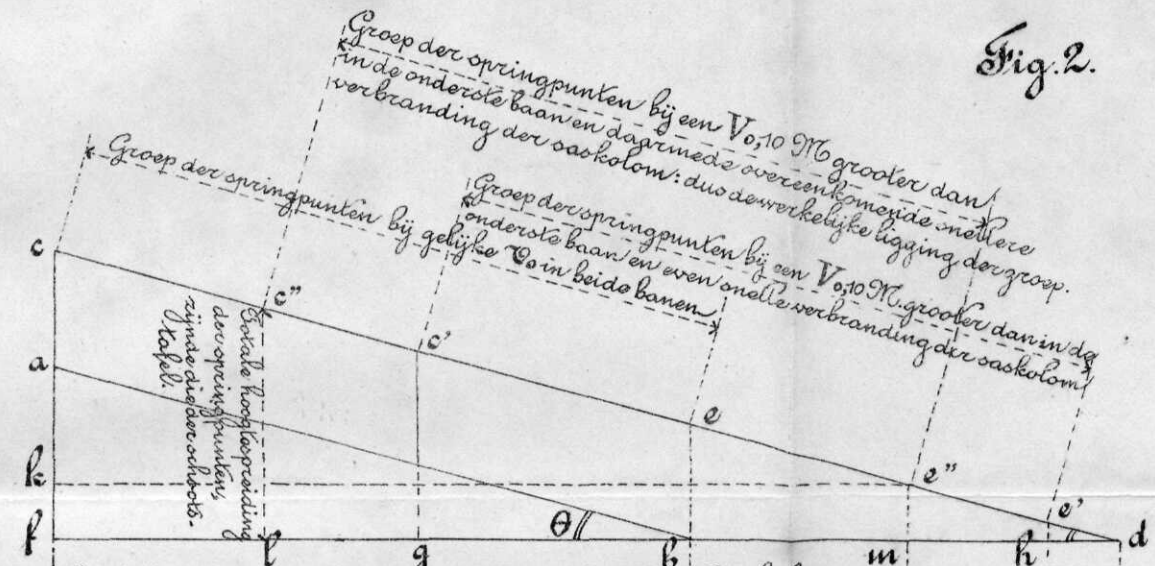 Fig. 2.
Groep der springpunten bij een V₀, 10 M grooter dan
in de onderste baan en daarmede overeenkomende snellere
verbranding der saskolom: dus de werkelijke ligging der groep.
Groep der springpunten bij gelijke V₀ in beide banen
Groep der springpunten bij een V₀, 10 M. grooter dan in de
onderste baan en even snelle verbranding der saskolom
Totale hoogtespreiding
der springpunten,
zijnde die der schoots-
tafel.
c
c"
c'
a
e
k
e"
e'
θ
f
l
g
h
m
h
d